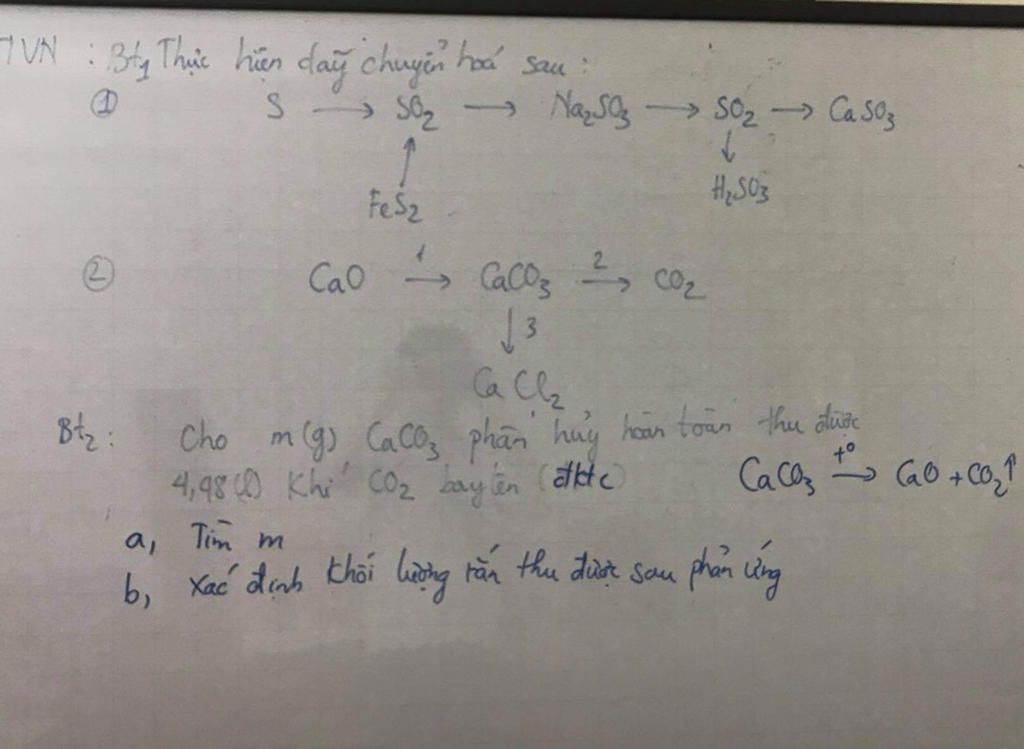 TVN : Bt1 Thực hiện dãy chuyển hoá sau :
① S → SO₂ → Na₂SO₃ → SO₂ → CaSO₃
↑ ↓
FeS₂ H₂SO₃
② CaO →1 CaCO₃ →2 CO₂
↓ 3
CaCl₂
Bt2 : Cho m(g) CaCO₃ phân hủy hoàn toàn thu được
4,98(l) Khí CO₂ bay lên (đktc) CaCO₃ →t° CaO + CO₂↑
a, Tìm m
b, Xác định khối lượng rắn thu được sau phản ứng